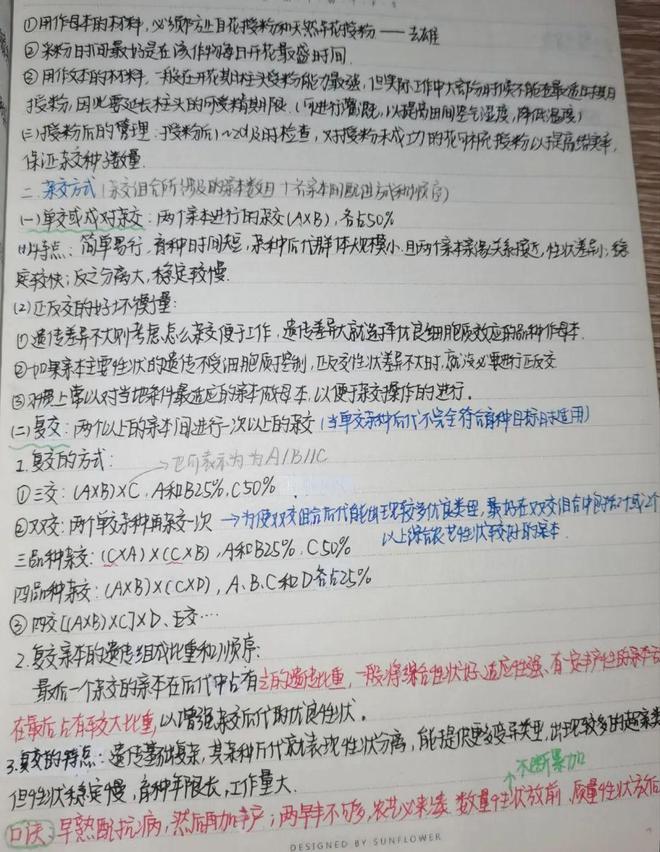 ①用作母本的材料，必须防止自花授粉和天然异花授粉——去雄
②采粉时间最好是在该作物每日开花最盛时间.
③用作父本的材料，一般在开花期柱头受粉能力最强，但实际工作中大部分时候不能在最适时期
授粉，因此要延长柱头的可受精期限.（可进行灌溉，以提高田间空气湿度，降低温度）
(三)授粉后的管理：授粉后1~2d及时检查，对授粉未成功的花补充授粉以提高结实率，
保证杂交种子数量.
二.杂交方式（杂交组合所涉及的亲本数目、各亲本间配组方式和顺序）
(一)单交或成对杂交：两个亲本进行的杂交(A×B)，各占50%
(1)特点：简单易行，育种时间短，杂种后代群体规模小.且两个亲本亲缘关系接近，性状差异小，稳
定较快；反之分离大，稳定较慢.
(2)正反交的好坏衡量：
①遗传差异不大则考虑怎么杂交便于工作，遗传差异大就选择优良细胞质效应的品种作母本.
②如果亲本主要性状的遗传不受细胞质控制，正反交性状差异不大时，就没必要进行正反交
③习惯上常以对当地条件最适应的亲本做母本，以便于杂交操作的进行.
(二)复交：两个以上的亲本间进行一次以上的杂交（当单交杂种后代不完全符合育种目标时适用）
1.复交的方式：
→也可表示为为A/B//C
①三交：(A×B)×C，A和B25%，C50%
②双交：两个单交杂种再杂交一次 →为使双交组合后代能出现较多优良类型，最好在双交组合中包括1个或2个
以上综合农艺性状较好的亲本
三品种杂交：(C×A)×(C×B)，A和B25%，C50%
四品种杂交：(A×B)×(C×D)，A、B、C和D各占25%
③四交[(A×B)×C]×D、五交…
2.复交亲本的遗传组成比重和顺序：
最后一个杂交的亲本在后代中占有½的遗传比重，一般将综合性状好、适应性强、有一定丰产性的亲本
在最后占有较大比重，以增强杂交后代的优良性状.
3.复交的特点：遗传基础复杂，其杂种后代就表现性状分离，能提供更多变异类型，出现较多的超亲类
但性状稳定慢，育种年限长，工作量大.
↑不断累加
口诀：早熟配抗病，然后再加丰产；两早丰不够，农艺必来凑 数量性状放前，质量性状放后
DESIGNED BY SUNFLOWER